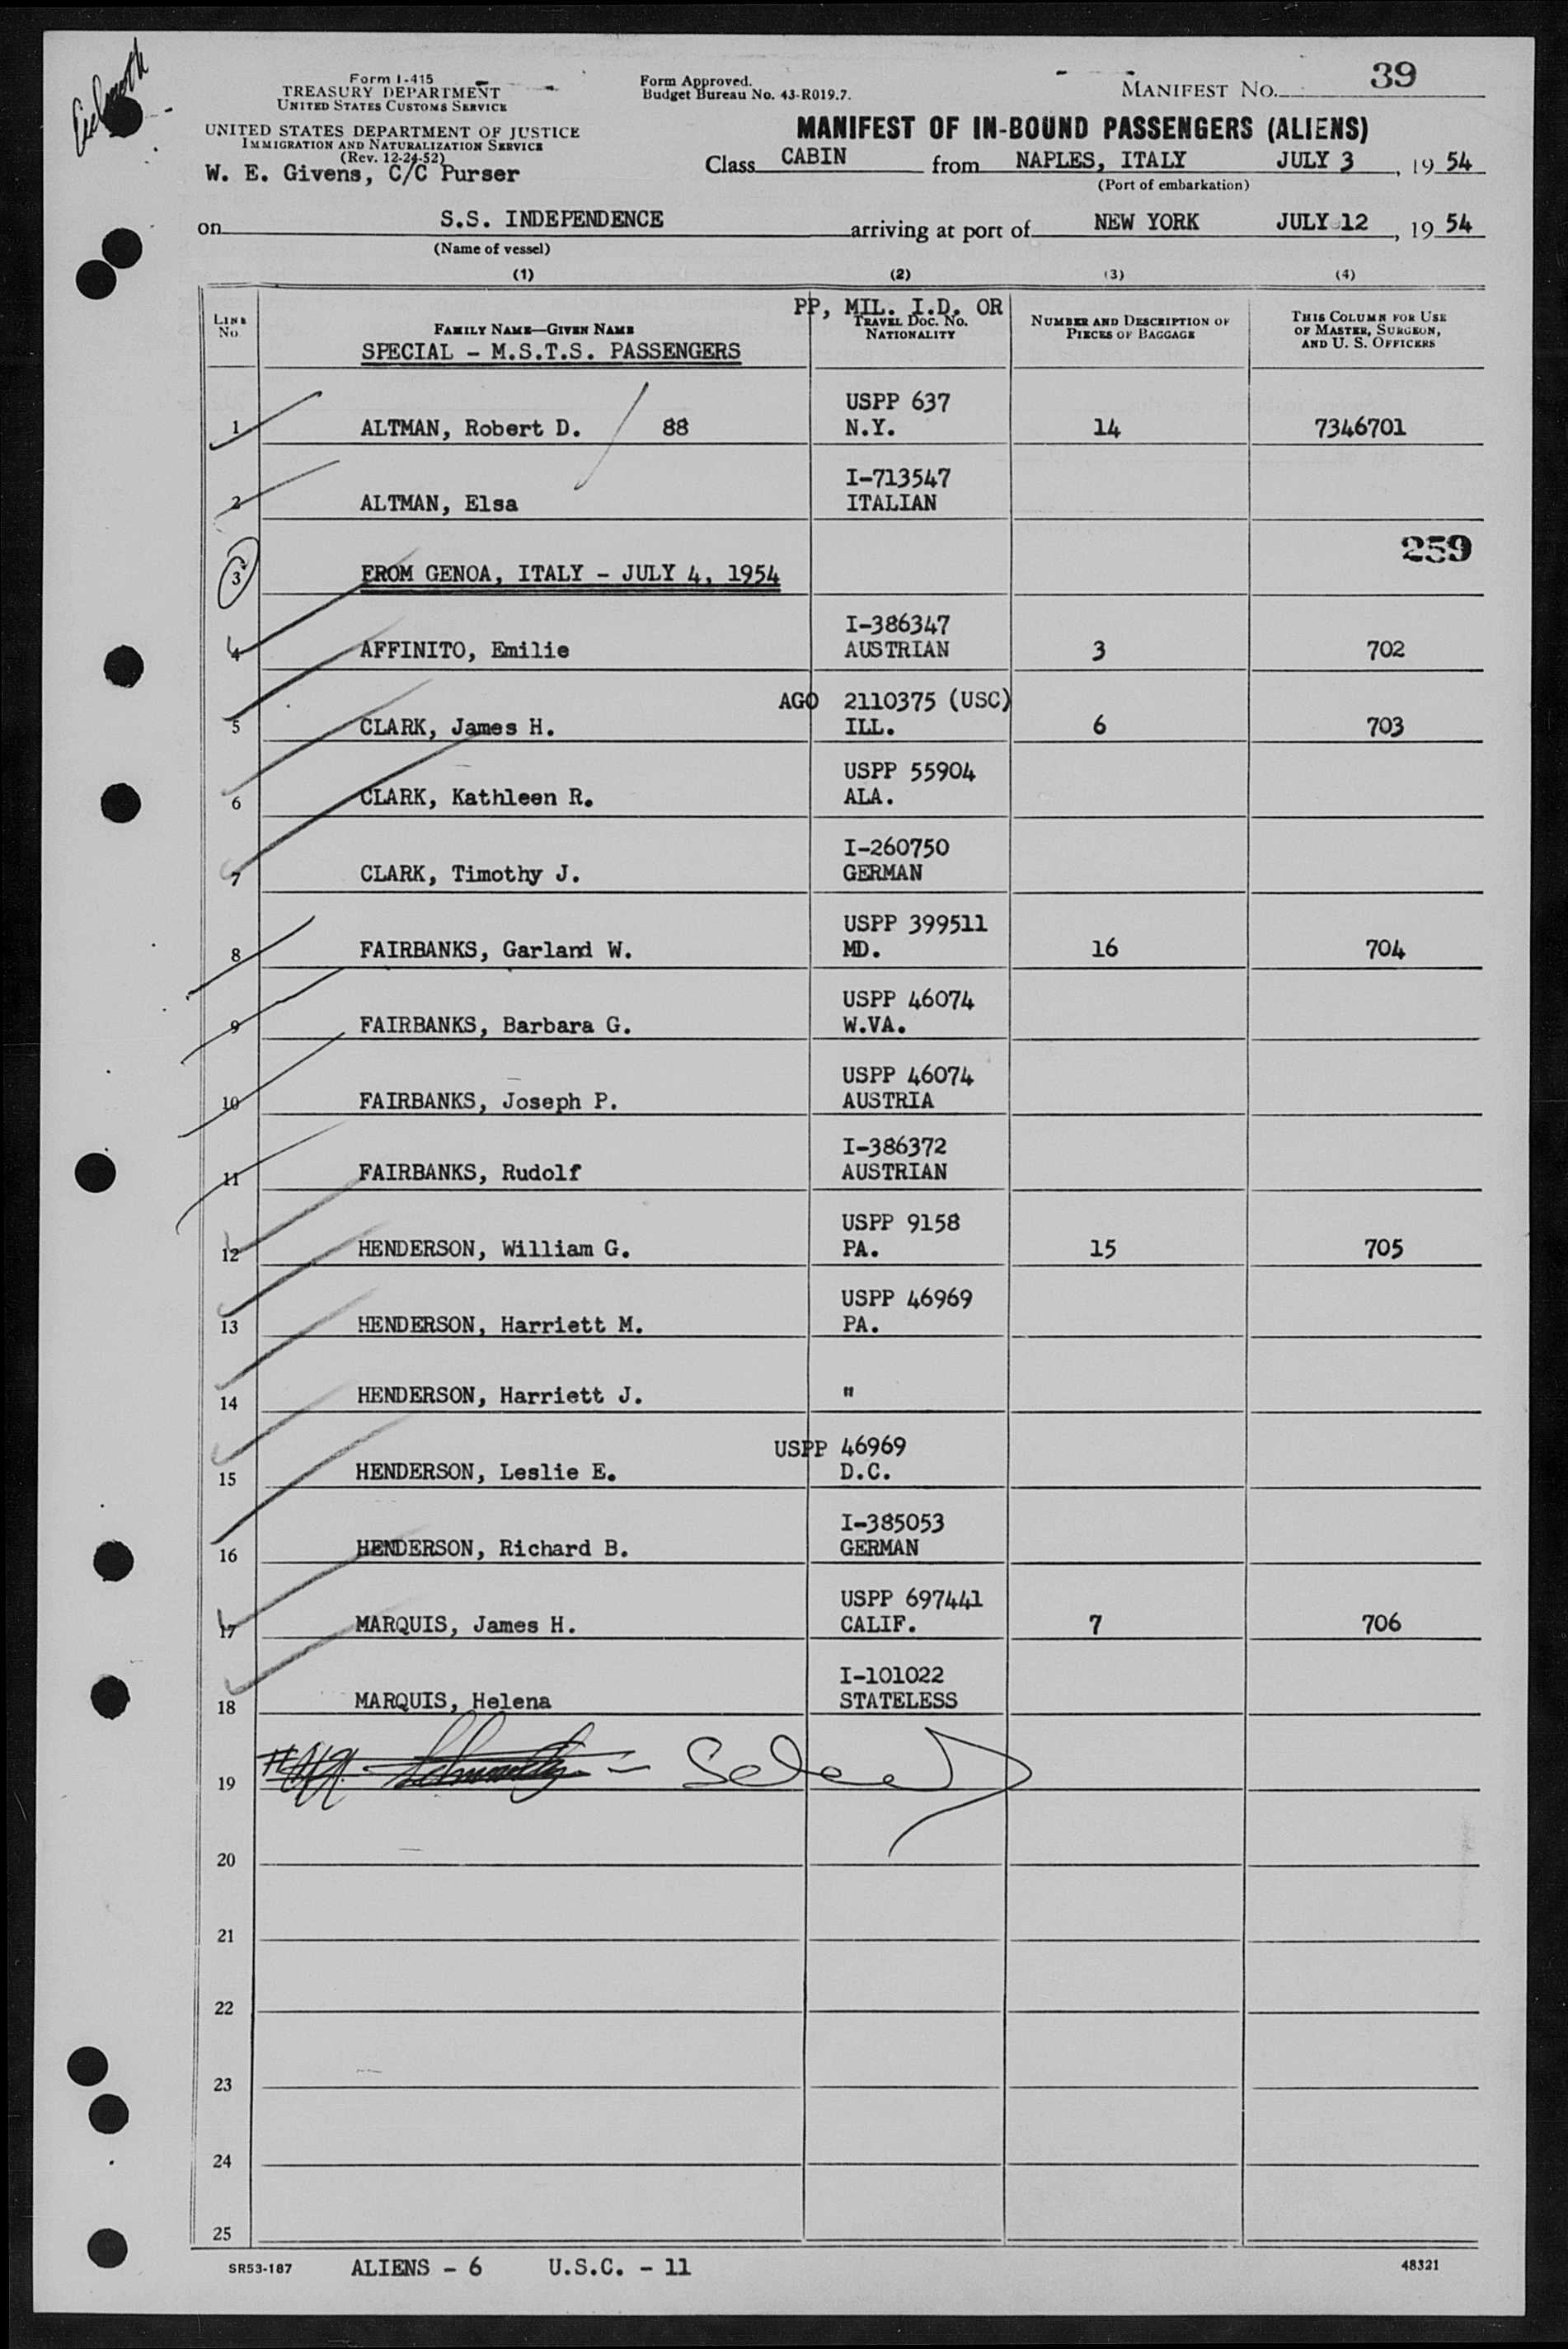 Form I-415
TREASURY DEPARTMENT
UNITED STATES CUSTOMS SERVICE
UNITED STATES DEPARTMENT OF JUSTICE
IMMIGRATION AND NATURALIZATION SERVICE
(Rev. 12-24-52)
W. E. Givens, C/C Purser
Form Approved.
Budget Bureau No. 43-R019.7.
MANIFEST NO. 39
MANIFEST OF IN-BOUND PASSENGERS (ALIENS)
Class CABIN from NAPLES, ITALY JULY 3, 1954
(Port of embarkation)
on S.S. INDEPENDENCE arriving at port of NEW YORK JULY 12, 1954
(Name of vessel)
(1) (2) (3) (4)
LINE No. FAMILY NAME—GIVEN NAME PP, MIL. I.D. OR TRAVEL DOC. NO. NATIONALITY NUMBER AND DESCRIPTION OF PIECES OF BAGGAGE THIS COLUMN FOR USE OF MASTER, SURGEON, AND U. S. OFFICERS
SPECIAL - M.S.T.S. PASSENGERS
USPP 637
1 ALTMAN, Robert D. 88 N.Y. 14 7346701
I-713547
2 ALTMAN, Elsa ITALIAN
259
3 FROM GENOA, ITALY - JULY 4, 1954
I-386347
4 AFFINITO, Emilie AUSTRIAN 3 702
AGO 2110375 (USC)
5 CLARK, James H. ILL. 6 703
USPP 55904
6 CLARK, Kathleen R. ALA.
I-260750
7 CLARK, Timothy J. GERMAN
USPP 399511
8 FAIRBANKS, Garland W. MD. 16 704
USPP 46074
9 FAIRBANKS, Barbara G. W.VA.
USPP 46074
10 FAIRBANKS, Joseph P. AUSTRIA
I-386372
11 FAIRBANKS, Rudolf AUSTRIAN
USPP 9158
12 HENDERSON, William G. PA. 15 705
USPP 46969
13 HENDERSON, Harriett M. PA.
14 HENDERSON, Harriett J. "
USPP 46969
15 HENDERSON, Leslie E. D.C.
I-385053
16 HENDERSON, Richard B. GERMAN
USPP 697441
17 MARQUIS, James H. CALIF. 7 706
I-101022
18 MARQUIS, Helena STATELESS
19
20
21
22
23
24
25
SR53-187 ALIENS - 6 U.S.C. - 11 48321